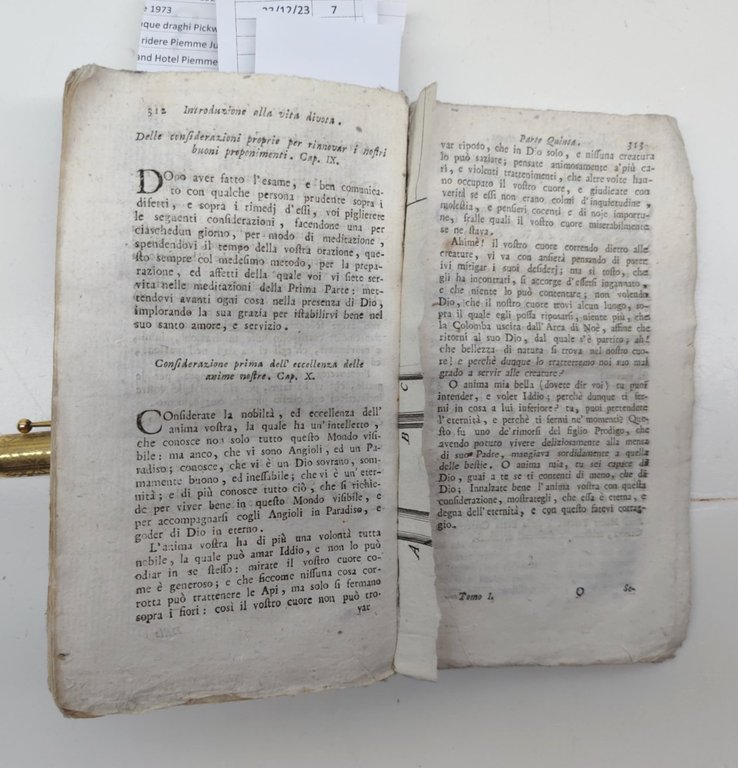 e 1973
22/12/23 7
que draghi Pickw
ridere Piemme Ju
and Hotel Piemme
312 Introduzione alla vita divota.
Delle considerazioni proprie per rinnovar i nostri
buoni proponimenti. Cap. IX.
DOpo aver fatto l'esame, e ben comunica-
to con qualche persona prudente sopra i
difetti, e sopra i rimedj d'essi, voi piglierete
le seguenti considerazioni, facendone una per
ciaschedun giorno, per modo di meditazione,
spendendovi il tempo della vostra orazione, que-
sto sempre col medesimo metodo, per la prepa-
razione, ed affetti della quale voi vi siete ser-
vita nelle meditazioni della Prima Parte: met-
tendovi avanti ogni cosa nella presenza di Dio,
implorando la sua grazia per istabilirvi bene nel
suo santo amore, e servizio.
Considerazione prima dell'eccellenza delle
anime nostre. Cap. X.
COnsiderate la nobiltà, ed eccellenza dell'
anima vostra, la quale ha un'intelletto,
che conosce non solo tutto questo Mondo visi-
bile: ma anco, che vi sono Angioli, ed un Pa-
radiso; conosce, che vi è un Dio sovrano, som-
mamente buono, ed ineffabile; che vi è un'eter-
nità; e di più conosce tutto ciò, che si richie-
de per viver bene in questo Mondo visibile, e
per accompagnarsi cogli Angioli in Paradiso, e
goder di Dio in eterno.
L'anima vostra ha di più una volontà tutta
nobile, la quale può amar Iddio, e non lo può
odiar in se stesso: mirate il vostro cuore co-
me è generoso; e che siccome nissuna cosa cor-
rotta può trattenere le Api, ma solo si fermano
sopra i fiori: così il vostro cuore non può tro-
var
A B C
Parte Quinta. 313
var riposo, che in Dio solo, e nissuna creatura
lo può saziare; pensate animosamente a'più ca-
ri, e violenti trattenimenti, che altre volte han-
no occupato il vostro cuore, e giudicate con
verità se essi non erano colmi d'inquietudine,
molestia, e pensieri cocenti e di noje importu-
ne, fralle quali il vostro cuore miserabilmente
se ne stava.
Ahimè! il vostro cuore correndo dietro alle
creature, vi va con ansietà pensando di poter
ivi mitigar i suoi desiderj; ma sì tosto, che
gli ha incontrati, si accorge d'essersi ingannato,
e che niente lo può contentare; non volendo
Dio, che il nostro cuore trovi alcun luogo, so-
pra il quale egli possa riposarsi, niente più, che
la Colomba uscita dall'Arca di Noè, affine che
ritorni al suo Dio, dal quale s'è partito; ah!
che bellezza di natura si trova nel nostro cuo-
re! e perchè dunque lo tratterremo noi suo mal
grado a servir alle creature?
O anima mia bella (dovete dir voi) tu puoi
intender, e voler Iddio; perchè dunque ti fer-
mi in cosa a lui inferiore? tu, puoi pretendere
l'eternità, e perchè ti fermi ne'momenti? Que-
sto fu uno de'rimorsi del figlio Prodigo, che
avendo potuto vivere deliziosamente alla mensa
di suo Padre, mangiava sordidamente a quella
delle bestie. O anima mia, tu sei capace di
Dio, guai a te se ti contenti di meno, che di
Dio; Innalzate bene l'anima vostra con questa
considerazione, mostrategli, che essa è eterna, e
degna dell'eternità, e con questo fatevi corag-
gio.
Tomo I. O Se-